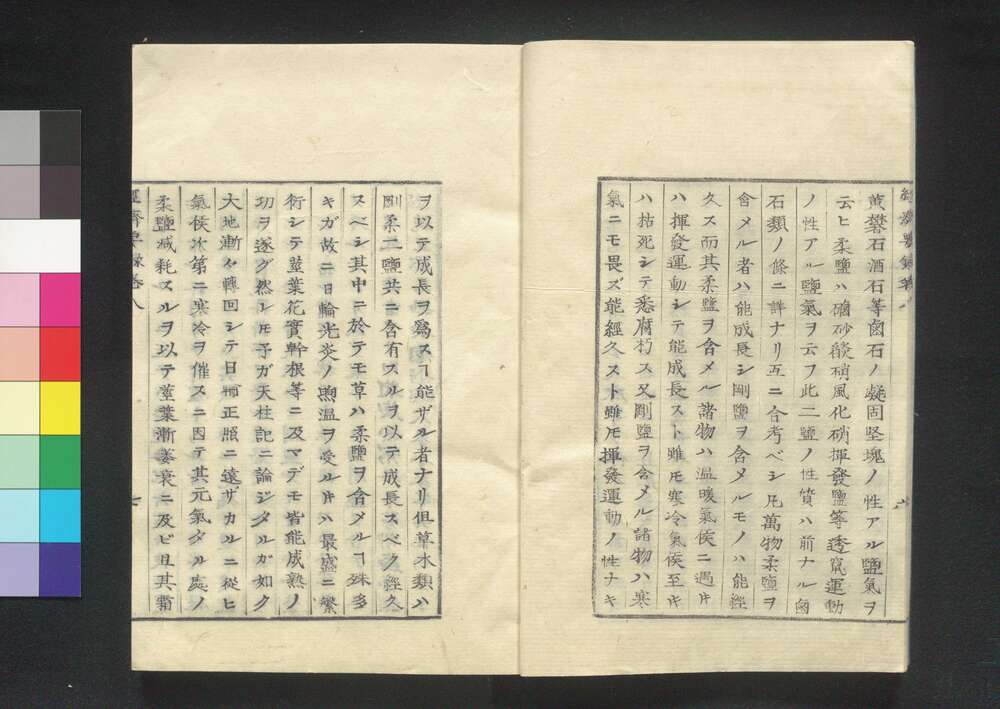 礬石酒石等鹵石ノ凝固堅塊ノ性アル鹽氣ヲ
云ヒ柔鹽ハ磠砂硝風化硝揮發鹽等透竄運動
ノ性アル鹽氣ヲ云フ此二鹽ノ性質ハ前ナル鹵
石類ノ條ニ詳ナリ互ニ合考ベシ凡萬物柔鹽ヲ
含メル者ハ能成長シ剛鹽ヲ含メルモノハ能經
久ス而其柔鹽ヲ含メル諸物ハ温暖氣候ニ遇片
ハ揮發運動シテ能成長スト雖𪜈寒冷氣候至片
ハ枯死シテ悉腐朽ス又剛鹽ヲ含メル諸物ハ寒
氣ニモ畏ズ能經久スト雖𪜈揮發運動ノ性ナキ
ヲ以テ成長ヲ爲スヿ能ザル者ナリ但草木類ハ
剛柔二鹽共ニ含有スルヲ以テ成長スベク經久
スベシ其中ニ於テモ草ハ柔鹽ヲ含メルヿ殊多
キガ故ニ日輪光炎ノ煦温ヲ受ル片ハ最盛ニ繁
衍シテ莖葉花實幹根等ニ及マデモ皆能成熟ノ
功ヲ遂グ然レ𪜈予ガ天柱記ニ論ジタルガ如ク
大地漸々轉回シテ日輪正照ニ遠ザカルニ從ヒ
氣候次第ニ寒冷ヲ催スニ因テ其元氣タル處ノ
柔鹽減耗スルヲ以テ莖葉漸萎衰ニ及ビ且其霜
經濟要録卷八
七